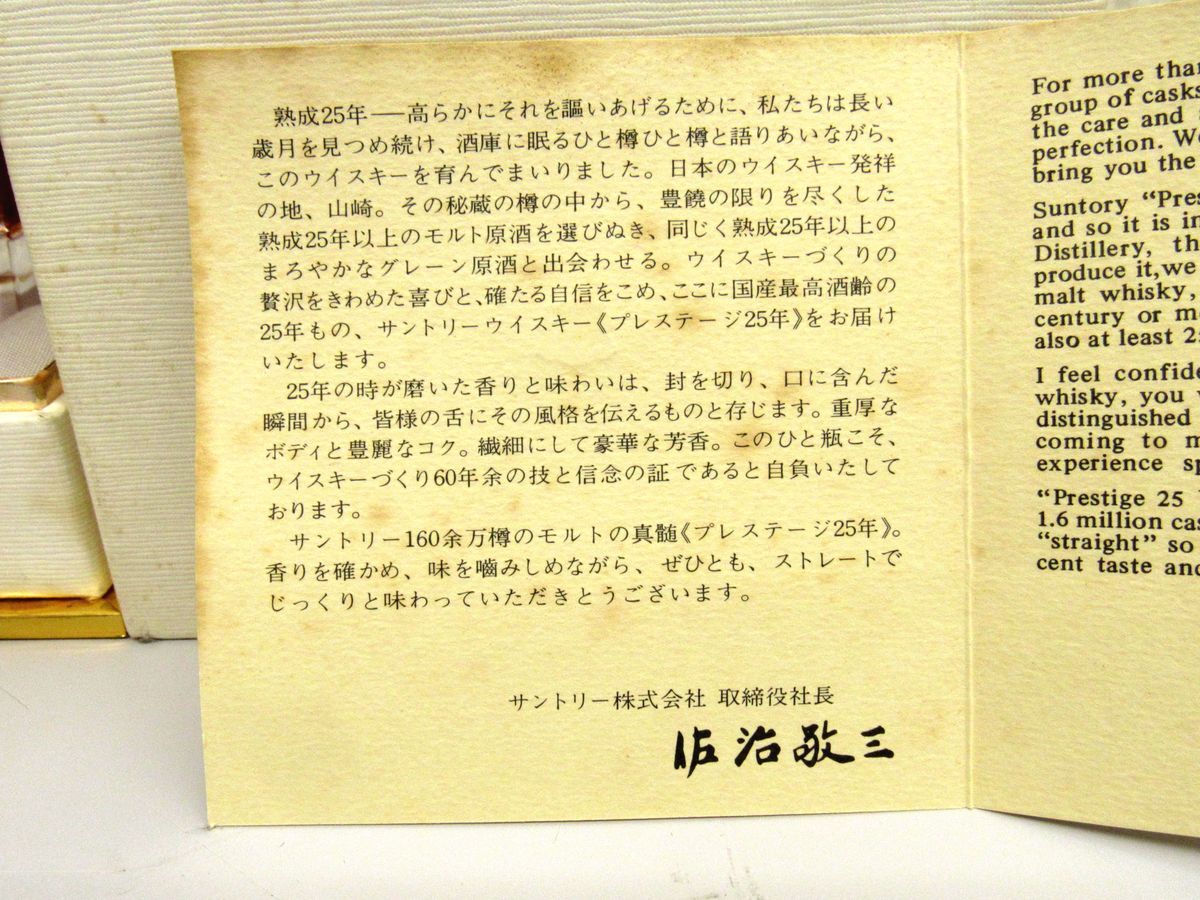 熟成25年──高らかにそれを謳いあげるために、私たちは長い
歳月を見つめ続け、酒庫に眠るひと樽ひと樽と語りあいながら、
このウイスキーを育んでまいりました。日本のウイスキー発祥
の地、山崎。その秘蔵の樽の中から、豊饒の限りを尽くした
熟成25年以上のモルト原酒を選びぬき、同じく熟成25年以上の
まろやかなグレーン原酒と出会わせる。ウイスキーづくりの
贅沢をきわめた喜びと、確たる自信をこめ、ここに国産最高酒齢の
25年もの、サントリーウイスキー《プレステージ25年》をお届け
いたします。
25年の時が磨いた香りと味わいは、封を切り、口に含んだ
瞬間から、皆様の舌にその風格を伝えるものと存じます。重厚な
ボディと豊麗なコク。繊細にして豪華な芳香。このひと瓶こそ、
ウイスキーづくり60年余の技と信念の証であると自負いたして
おります。
サントリー160余万樽のモルトの真髄《プレステージ25年》。
香りを確かめ、味を嚙みしめながら、ぜひとも、ストレートで
じっくりと味わっていただきとうございます。
サントリー株式会社 取締役社長
佐治敬三
For more than
group of casks
the care and
perfection. We
bring you the
Suntory “Pres
and so it is in
Distillery, th
produce it, we
malt whisky,
century or mo
also at least 25
I feel confide
whisky, you w
distinguished
coming to m
experience sp
“Prestige 25
1.6 million cas
“straight” so
cent taste and